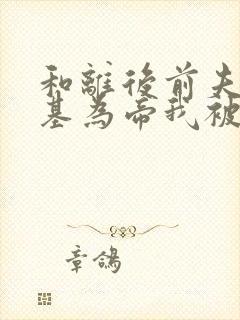 和離後前夫
基為帝我被
章鴿